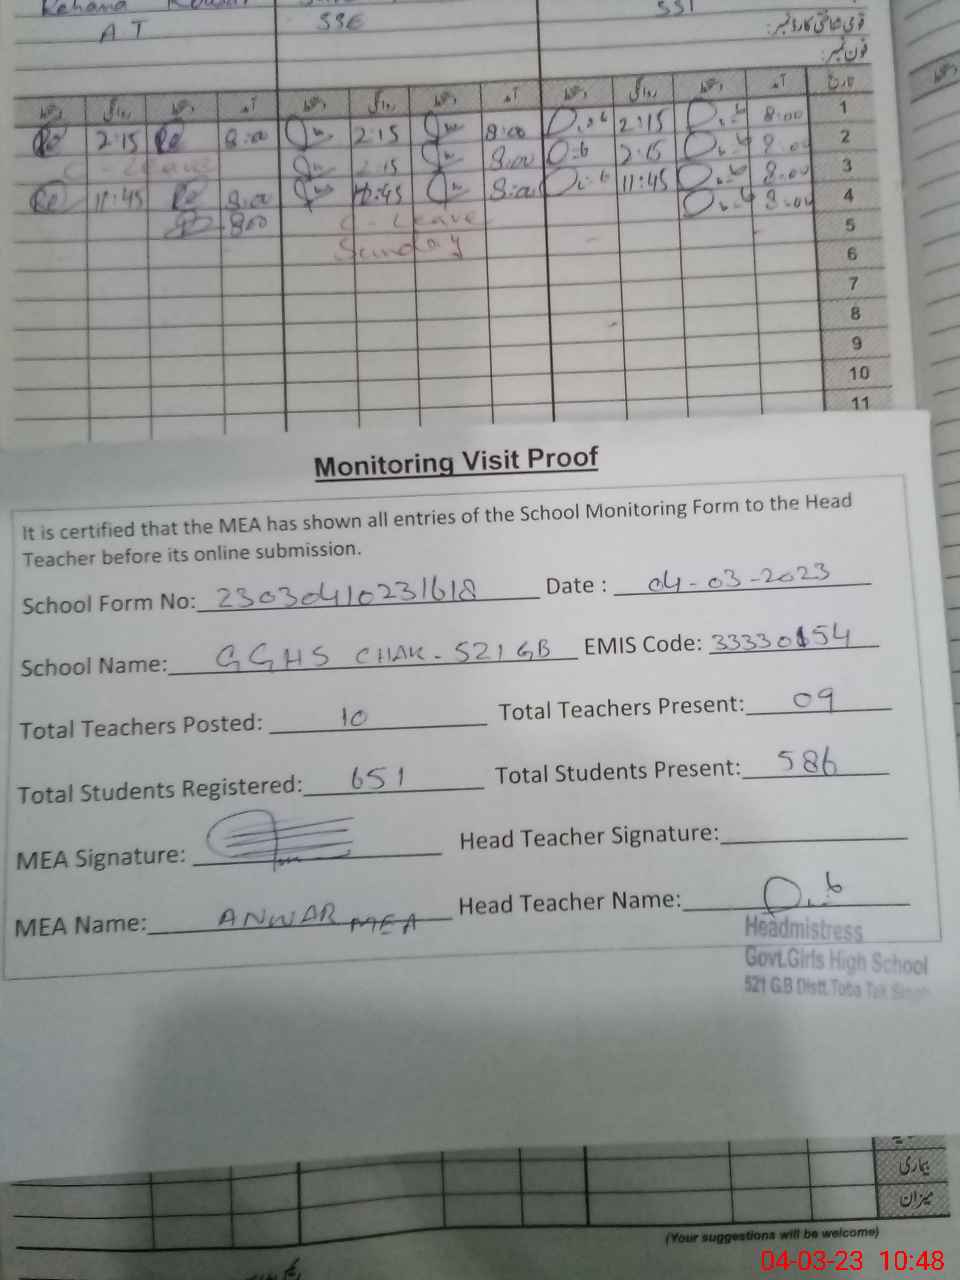 Rehana Kousar
A T SSE SSI
قومی شناختی کارڈ نمبر:
فون نمبر:
دستخط روانگی دستخط آمد دستخط روانگی دستخط آمد دستخط روانگی دستخط آمد تاریخ
2:15 8:00 2:15 8:00 2:15 8:00 1
C - Leave 2:15 8:00 2:15 8:00 2
11:45 8:00 8:00 11:45 8:00 3
800 C - Leave 8:00 4
Sunday 5
6
7
8
9
10
11
Monitoring Visit Proof
It is certified that the MEA has shown all entries of the School Monitoring Form to the Head
Teacher before its online submission.
School Form No: 23030410231618 Date : 04-03-2023
School Name: GGHS CHAK - 521 GB EMIS Code: 33330154
Total Teachers Posted: 10 Total Teachers Present: 09
Total Students Registered: 651 Total Students Present: 586
MEA Signature: Head Teacher Signature:
MEA Name: ANWAR MEA Head Teacher Name:
Headmistress
Govt.Girls High School
521 G.B Distt.Toba Tek Singh
بیماری
میزان
(Your suggestions will be welcome)
04-03-23 10:48